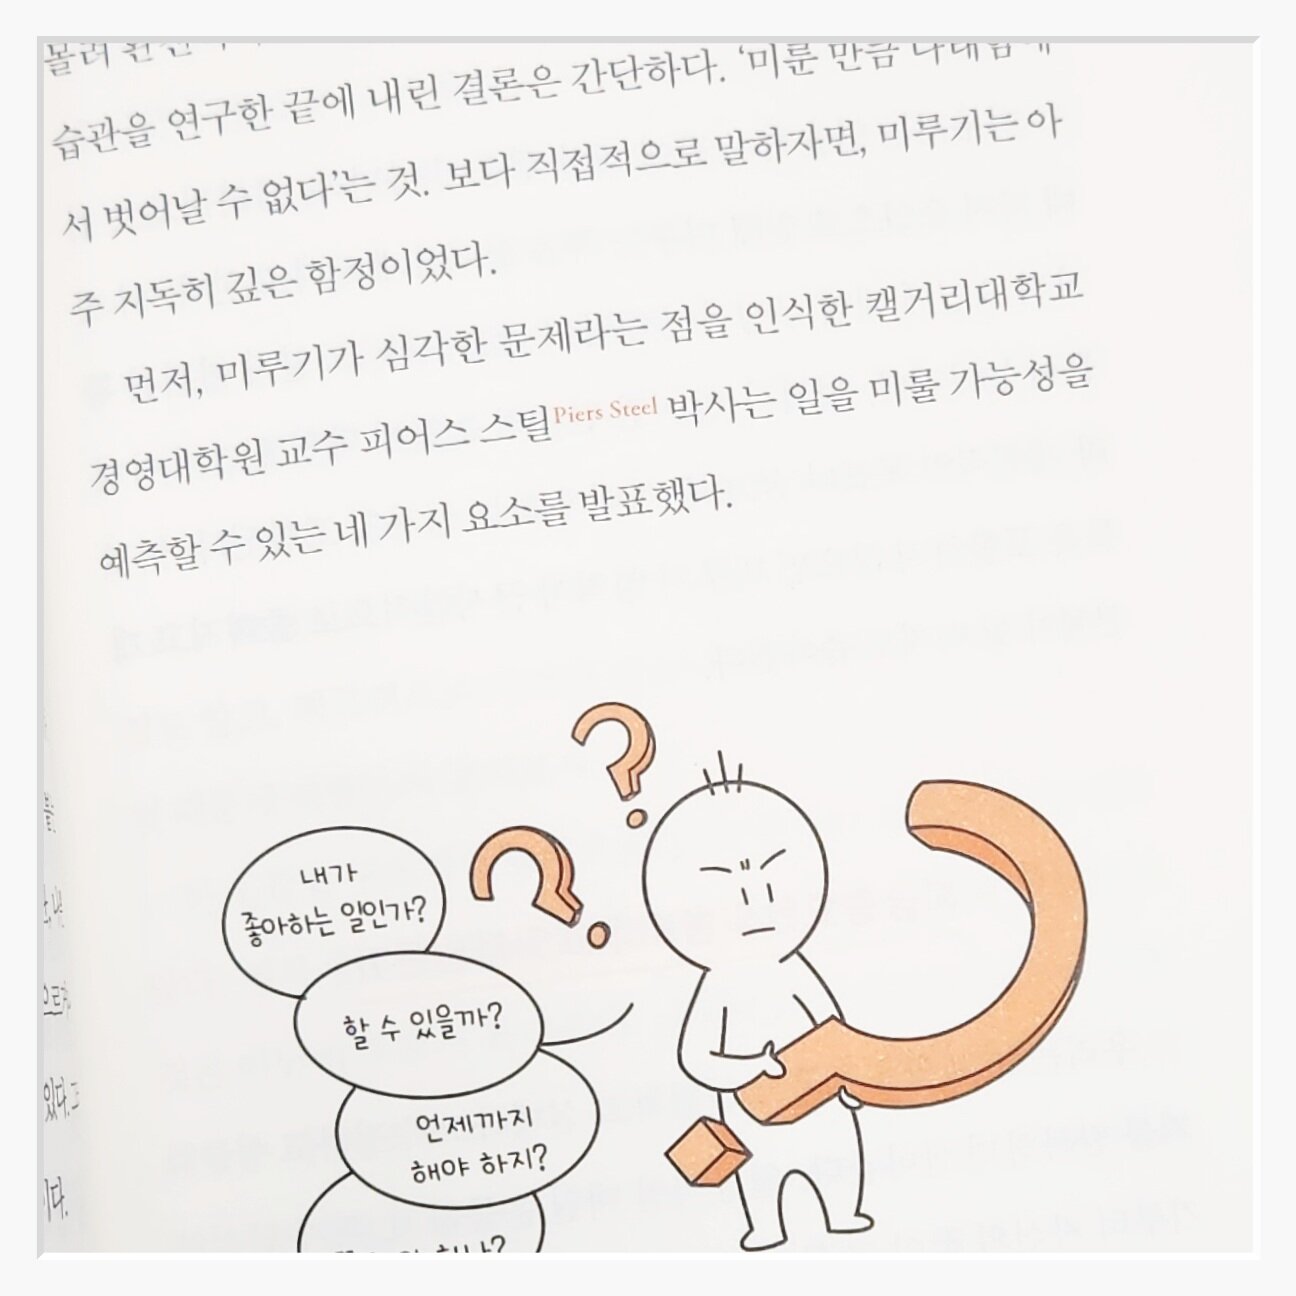 습관을 연구한 끝에 내린 결론은 간단하다. ‘미룬 만큼
서 벗어날 수 없다’는 것. 보다 직접적으로 말하자면, 미루기는 아
주 지독히 깊은 함정이었다.
먼저, 미루기가 심각한 문제라는 점을 인식한 캘거리대학교
경영대학원 교수 피어스 스틸Piers Steel 박사는 일을 미룰 가능성을
예측할 수 있는 네 가지 요소를 발표했다.
내가
좋아하는 일인가?
할 수 있을까?
언제까지
해야 하지?
있다.